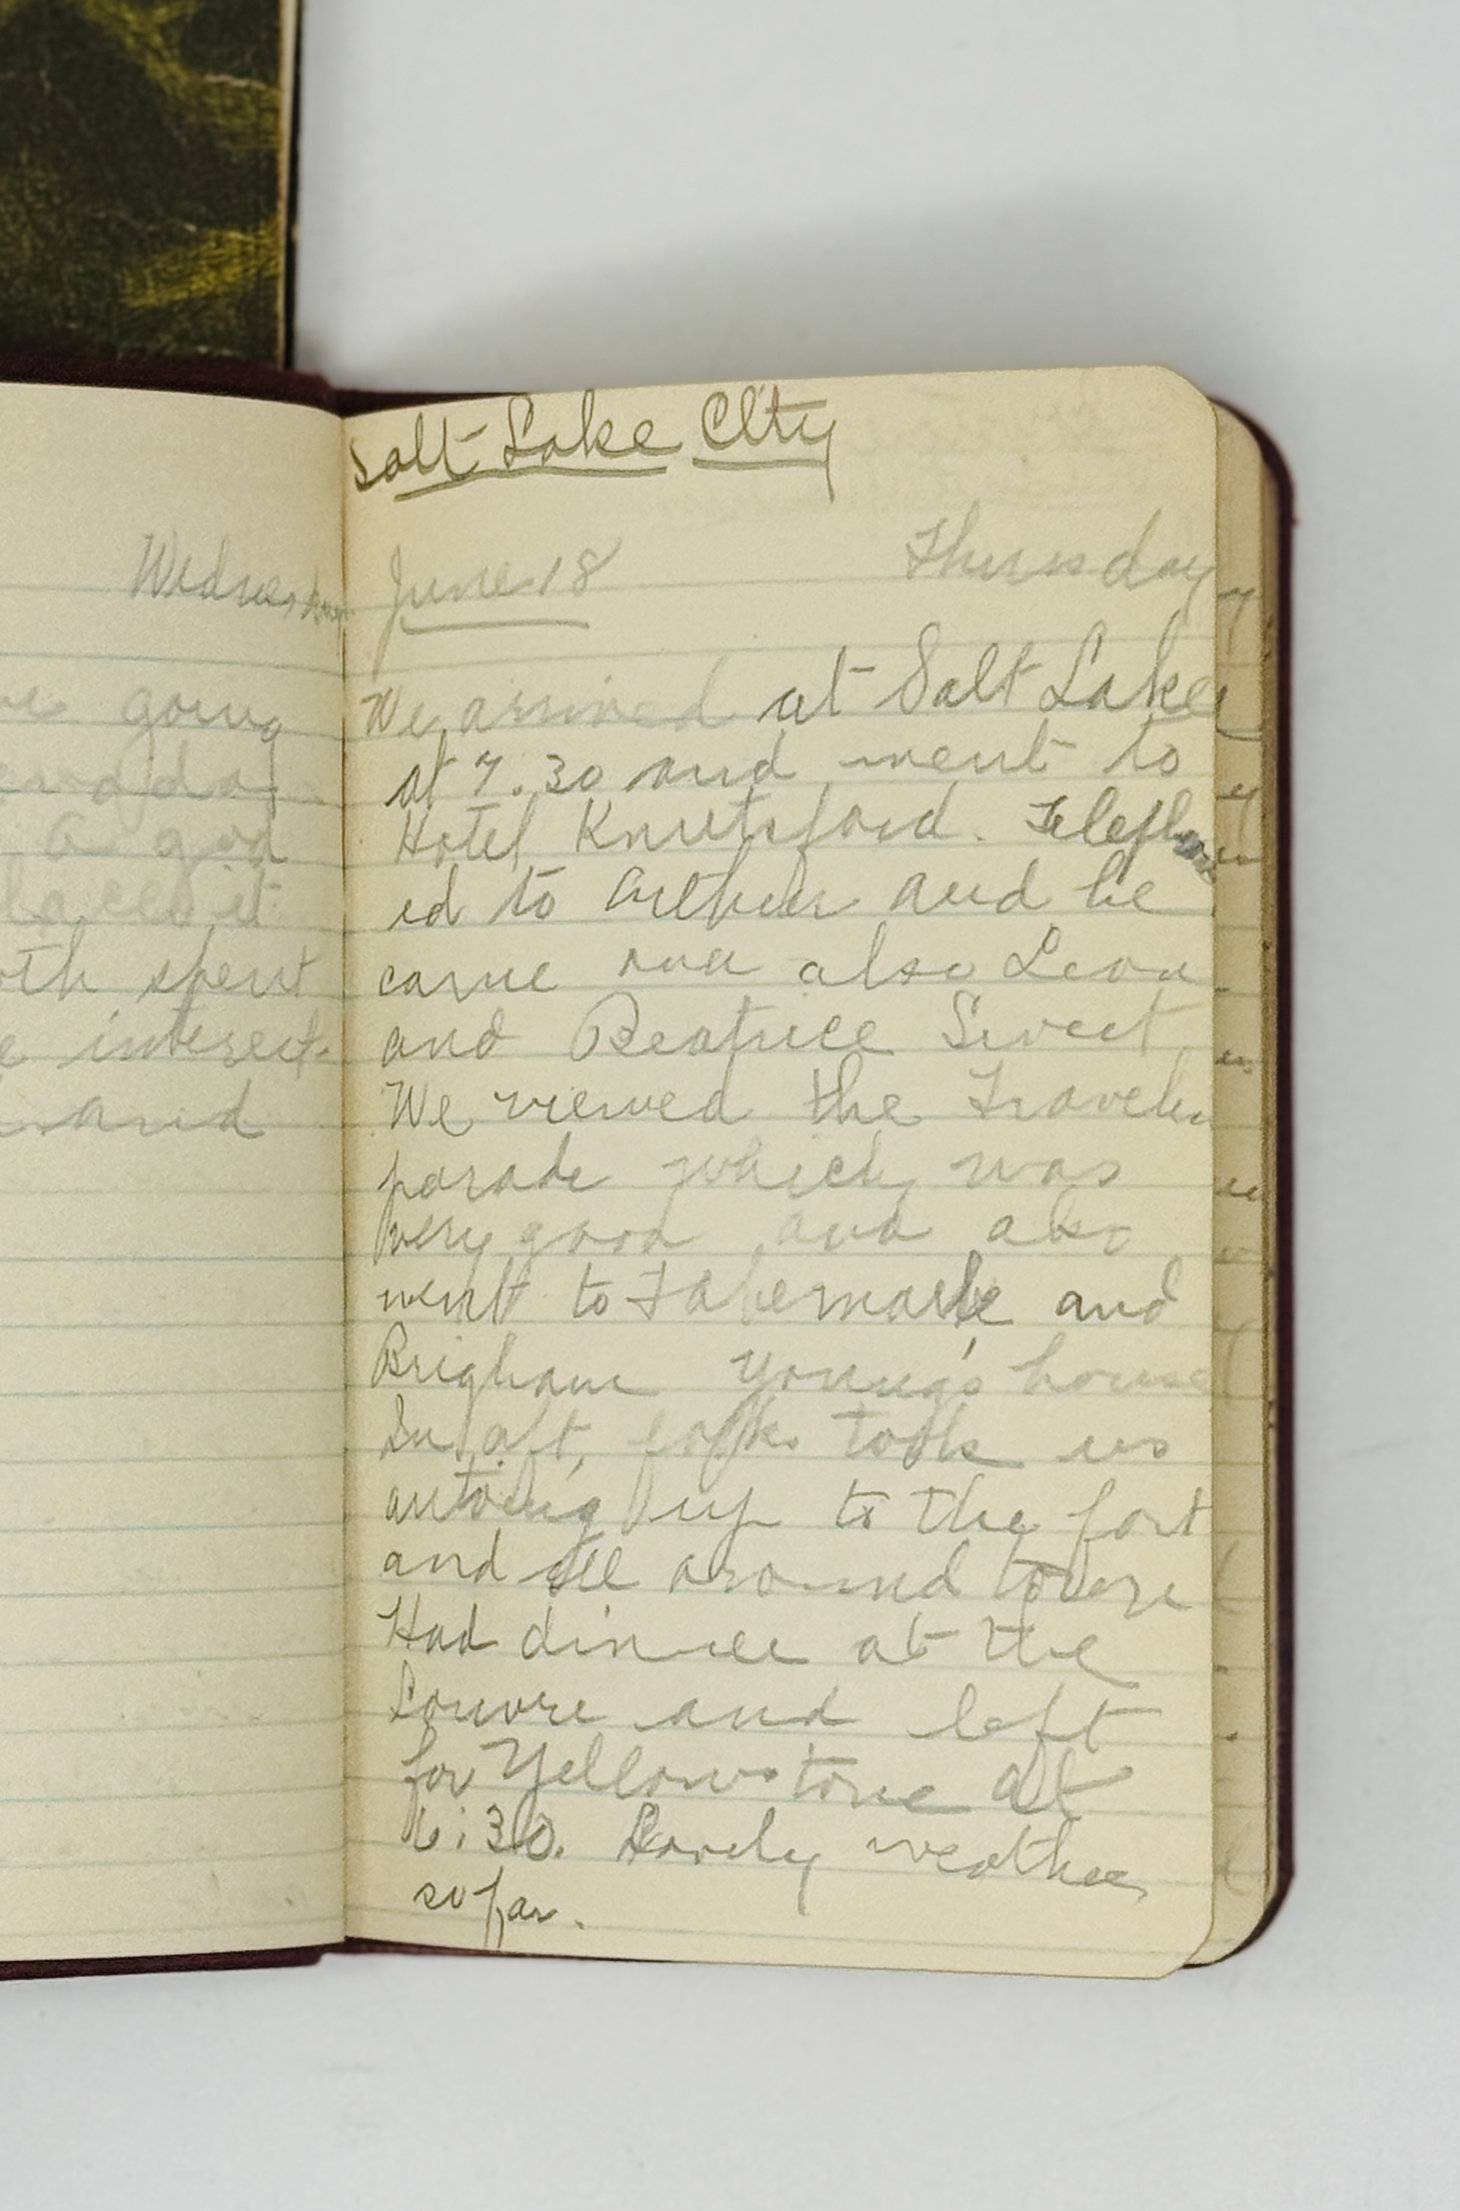 Wednesday
going
a god
places it
spent
interest-
and
Salt Lake City
June 18 Thursday
We arrived at Salt Lake
at 7.30 and went to
Hotel Knutsford. Telephon
ed to Arthur and he
came over also Leon
and Beatrice Sweet
We viewed the Travelers
parade which was
very good and also
went to Tabernacle and
Brigham Young's house
In aft, folks took us
autoing up to the fort
and all around town
Had dinner at the
Louvre and left
for Yellowstone at
6:30. Lovely weather
so far.